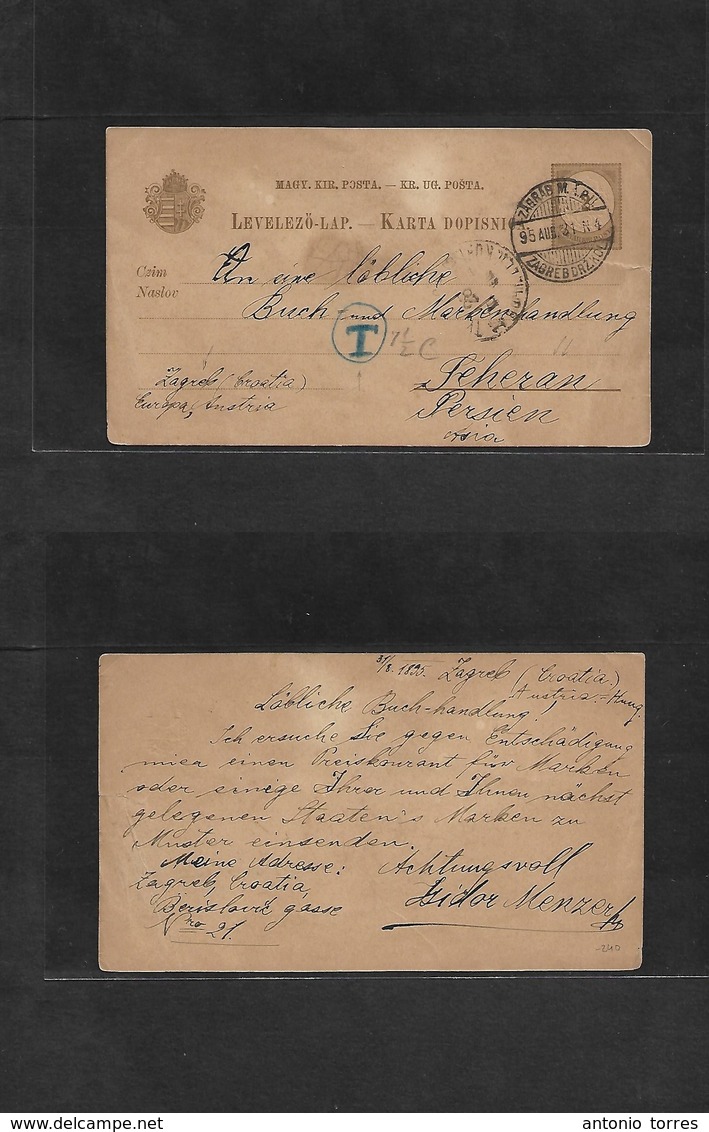 MAGY. KIR. POSTA. — KR. UG. POŠTA.
LEVELEZŐ-LAP. — KARTA DOPISNI
ZAGRAB M.
95 AUG. 31 N 4
ZAGREB DRZ. KOL.
Czim
Naslov
An eine löbliche
Buch- und Markenhandlung
T
7 1/2 C
Teheran
Persien
Asia
Zagreb (Croatia)
Europa, Austria
31/8. 1895. Zagreb (Croatia.)
Austria-Hung.
Löbliche Buch-handlung!
Ich ersuche Sie gegen Entschädigung
mien einen Preiskourant für Marken
oder einige Ihrer und Ihnen nächst
gelegenen Staaten's Marken zu
Muster einsenden.
Meine Adresse: Achtungsvoll
Zagreb, Croatia, Isidor Menzer
Berislavić gasse
Nro 21.
-240
antonio torres